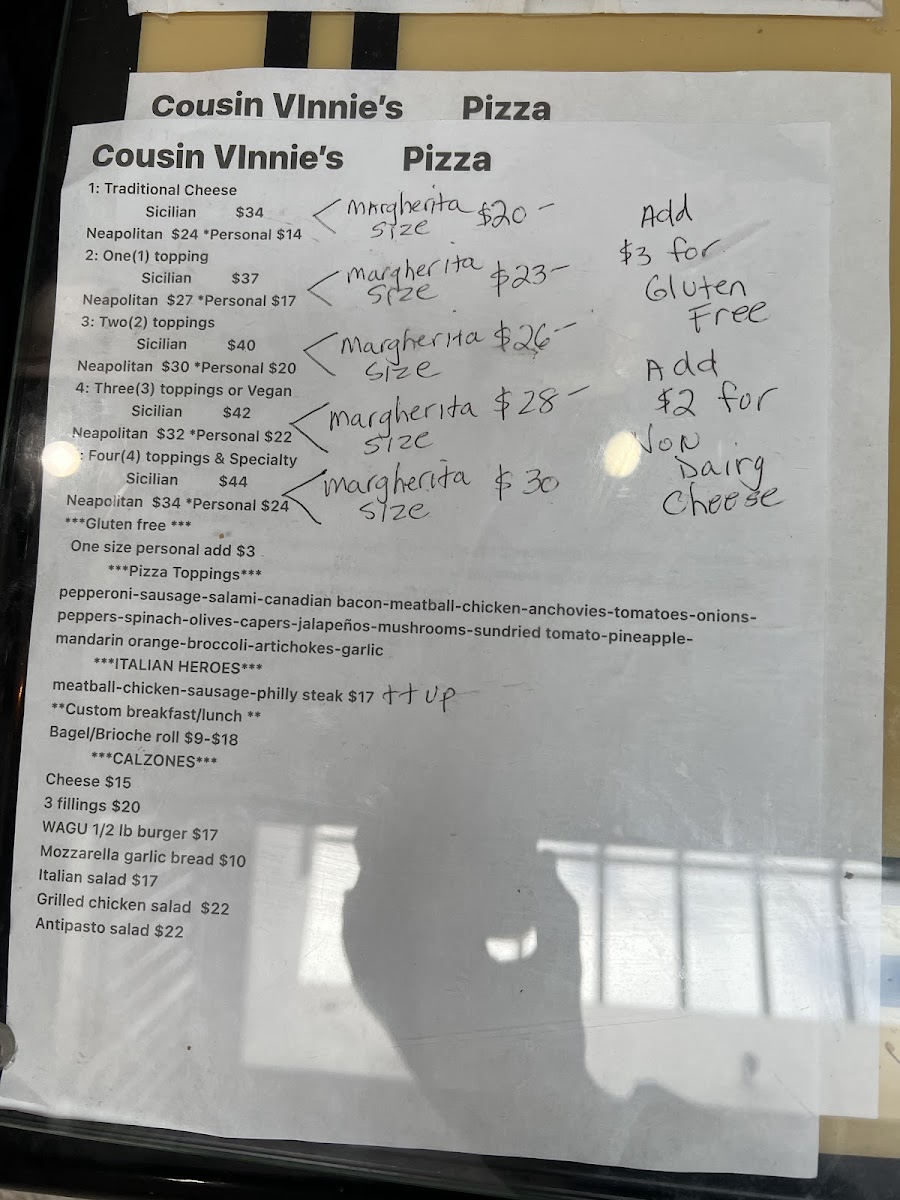 Cousin VInnie's Pizza
Cousin VInnie's Pizza
1: Traditional Cheese
Sicilian $34
Neapolitan $24 *Personal $14
Margherita size $20 -
2: One(1) topping
Sicilian $37
Neapolitan $27 *Personal $17
margherita size $23-
3: Two(2) toppings
Sicilian $40
Neapolitan $30 *Personal $20
Margherita size $26-
4: Three(3) toppings or Vegan
Sicilian $42
Neapolitan $32 *Personal $22
margherita size $28-
: Four(4) toppings & Specialty
Sicilian $44
Neapolitan $34 *Personal $24
margherita size $30
Add
$3 for
Gluten
Free
Add
$2 for
Non
Dairy
Cheese
***Gluten free ***
One size personal add $3
***Pizza Toppings***
pepperoni-sausage-salami-canadian bacon-meatball-chicken-anchovies-tomatoes-onions-
peppers-spinach-olives-capers-jalapeños-mushrooms-sundried tomato-pineapple-
mandarin orange-broccoli-artichokes-garlic
***ITALIAN HEROES***
meatball-chicken-sausage-philly steak $17 ++ up
**Custom breakfast/lunch **
Bagel/Brioche roll $9-$18
***CALZONES***
Cheese $15
3 fillings $20
WAGU 1/2 lb burger $17
Mozzarella garlic bread $10
Italian salad $17
Grilled chicken salad $22
Antipasto salad $22